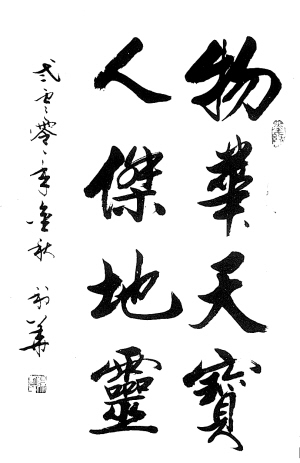 物華天寶
人傑地靈
弍零零年金秋
華